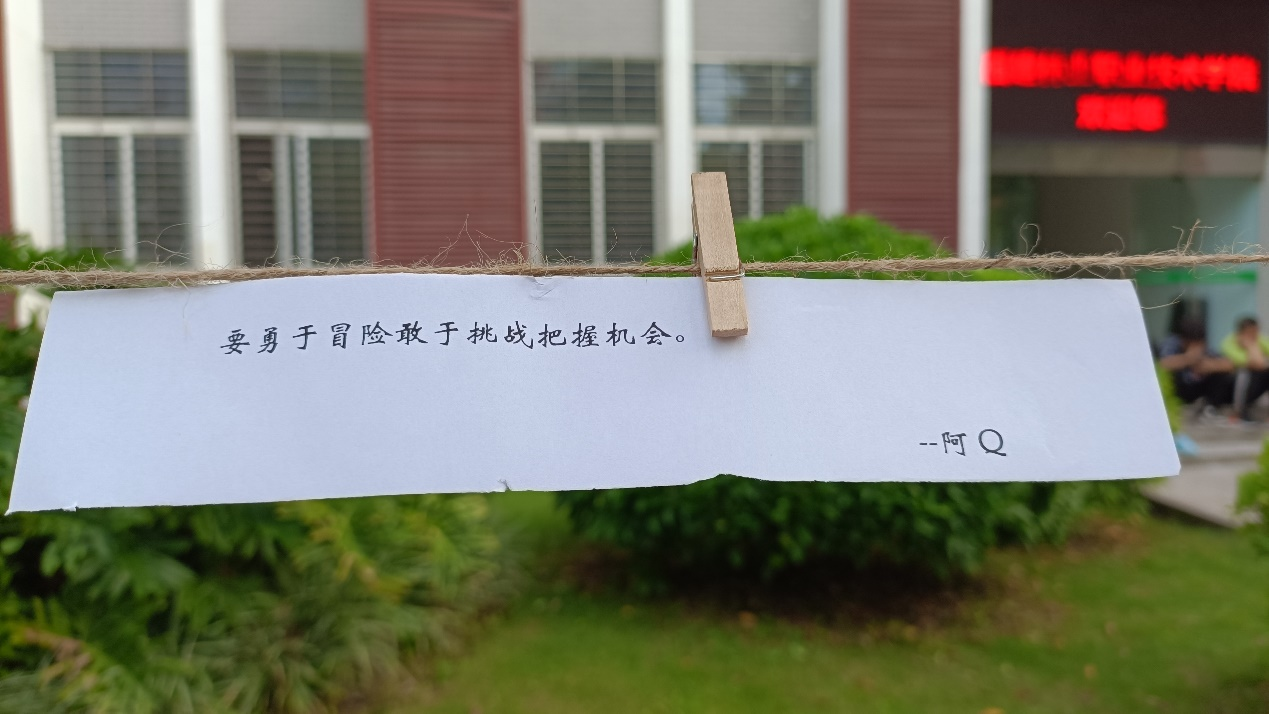 要勇于冒险敢于挑战把握机会。
--阿Q